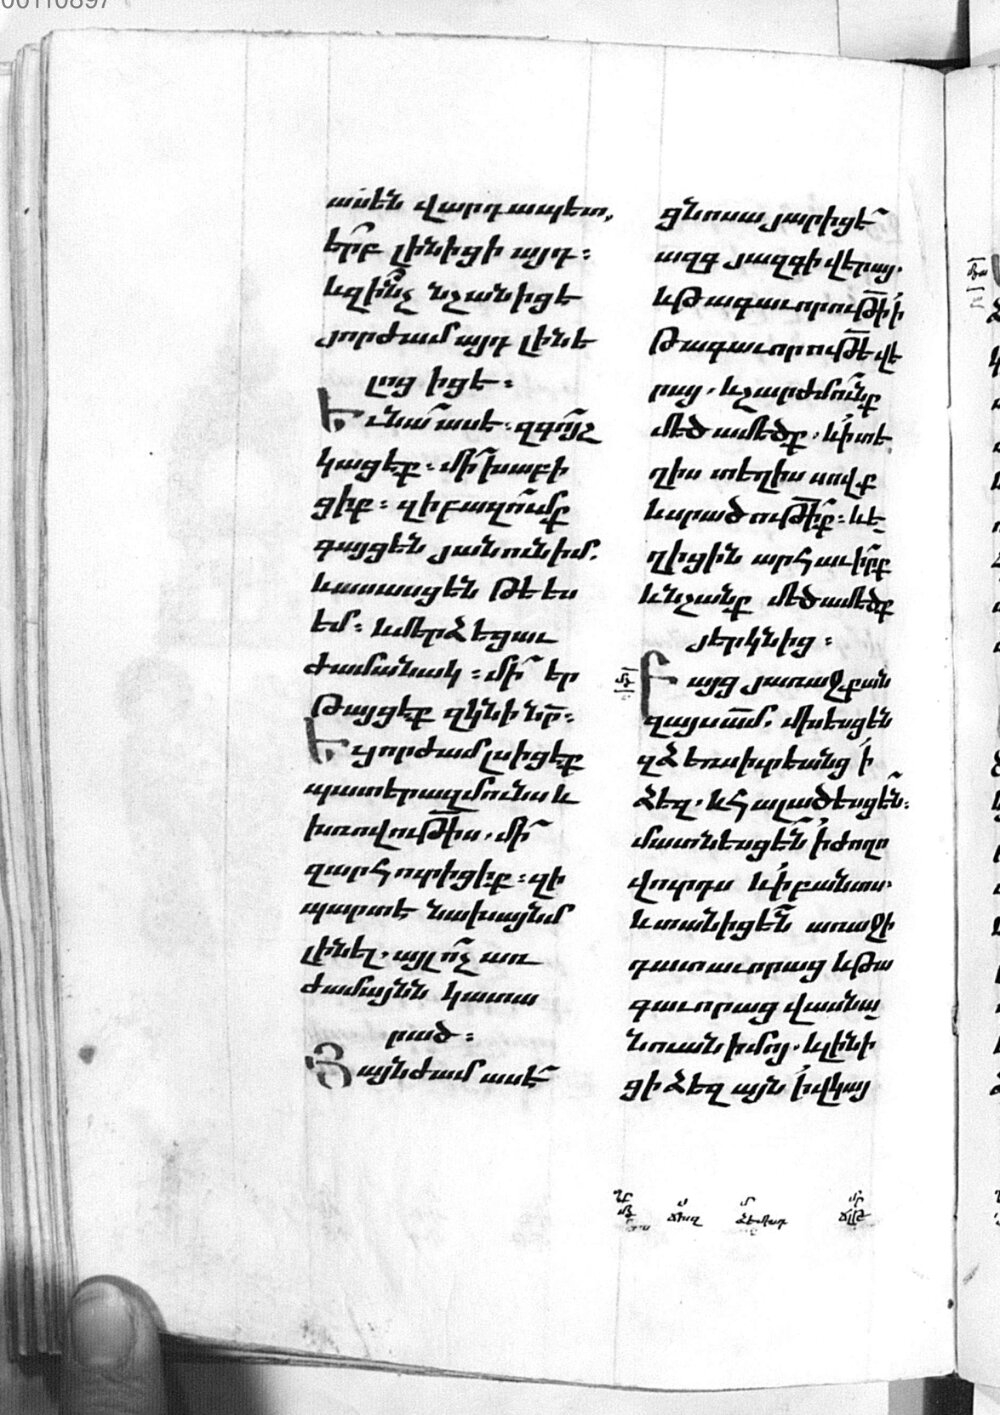 ասեն վարդապետ,
ե՞րբ լինիցի այդ։
և զի՞նչ նշանիցե
յորժամ այդ լինե
լոց իցե։
Եւ նա՛ ասե. զգո՛յշ
կացէք։ մի՛ խաբի
ցիք։ զի բազո՛ւմք
գայցեն յանուն իմ.
և ասասցեն թե ես
եմ։ և մերձեցաւ
ժամանակ։ մի՛ եր
թայցէք զկնի նր̅։
Եւ յորժամ լսիցէք
պատերազմունս և
խռովութի̅ս. մի՛
զարհուրիցիք։ զի
պարտե նախ այնմ
լինել. այլ ո՛չ առ
ժամայնն կատա
րած։
Յայնժամ ասե՛
ցնոսա յարիցե՛
ազգ յազգի վերայ.
և թագաւորութի̅ ի
թագաւորութե̅ վե
րայ. և շարժմո՛ւնք
մեծամեծք. և ի տե
ղիս տեղիս սովք
և սրածութի̅ք։ և ե
ղիցին արհաւիրք
և նշանք մեծամեծք
յերկնից։
Բայց յառաջ քան
զայս ամ̅. մխեսցեն
զձեռս իւրեանց ի
ձեզ. և հալածեսցեն։
մատնեսցեն ի ժողո
վուրդս և ի բանտս.
և տանիցեն առաջի
դատաւորաց և թա
գաւորաց վասն ա
նուան իմոյ. և լինի
ցի ձեզ այն ի վկայ